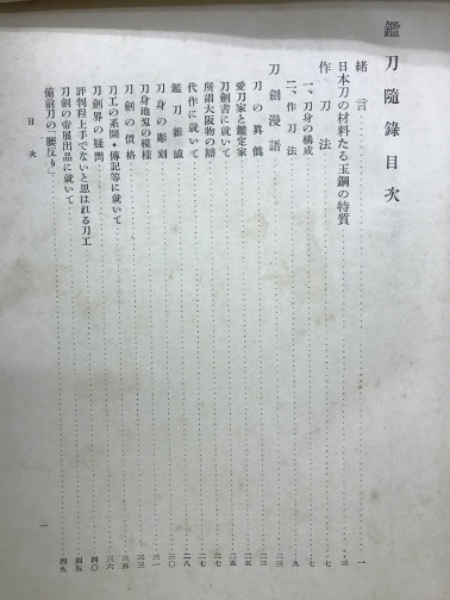 鑑刀隨錄目次
緒言……一
日本刀の材料たる玉鋼の特質……三
作刀法……七
一、刀身の構成……七
二、作刀法……九
刀劍漫語……二三
刀の眞僞……二三
愛刀家と鑑定家……二五
刀劍書に就いて……二五
所謂大阪物の辯……二七
代作に就いて……二七
鑑刀雜感……二八
刀身の彫刻……三〇
刀身地刄の模樣……三一
刀劍の價格……三三
刀工の系圖・傳記等に就いて……三五
刀劍界の疑問……三六
評判程上手でないと思はれる刀工……四〇
刀劍の帝展出品に就いて……四五
備前刀の「腰反り」……四九
目次
一